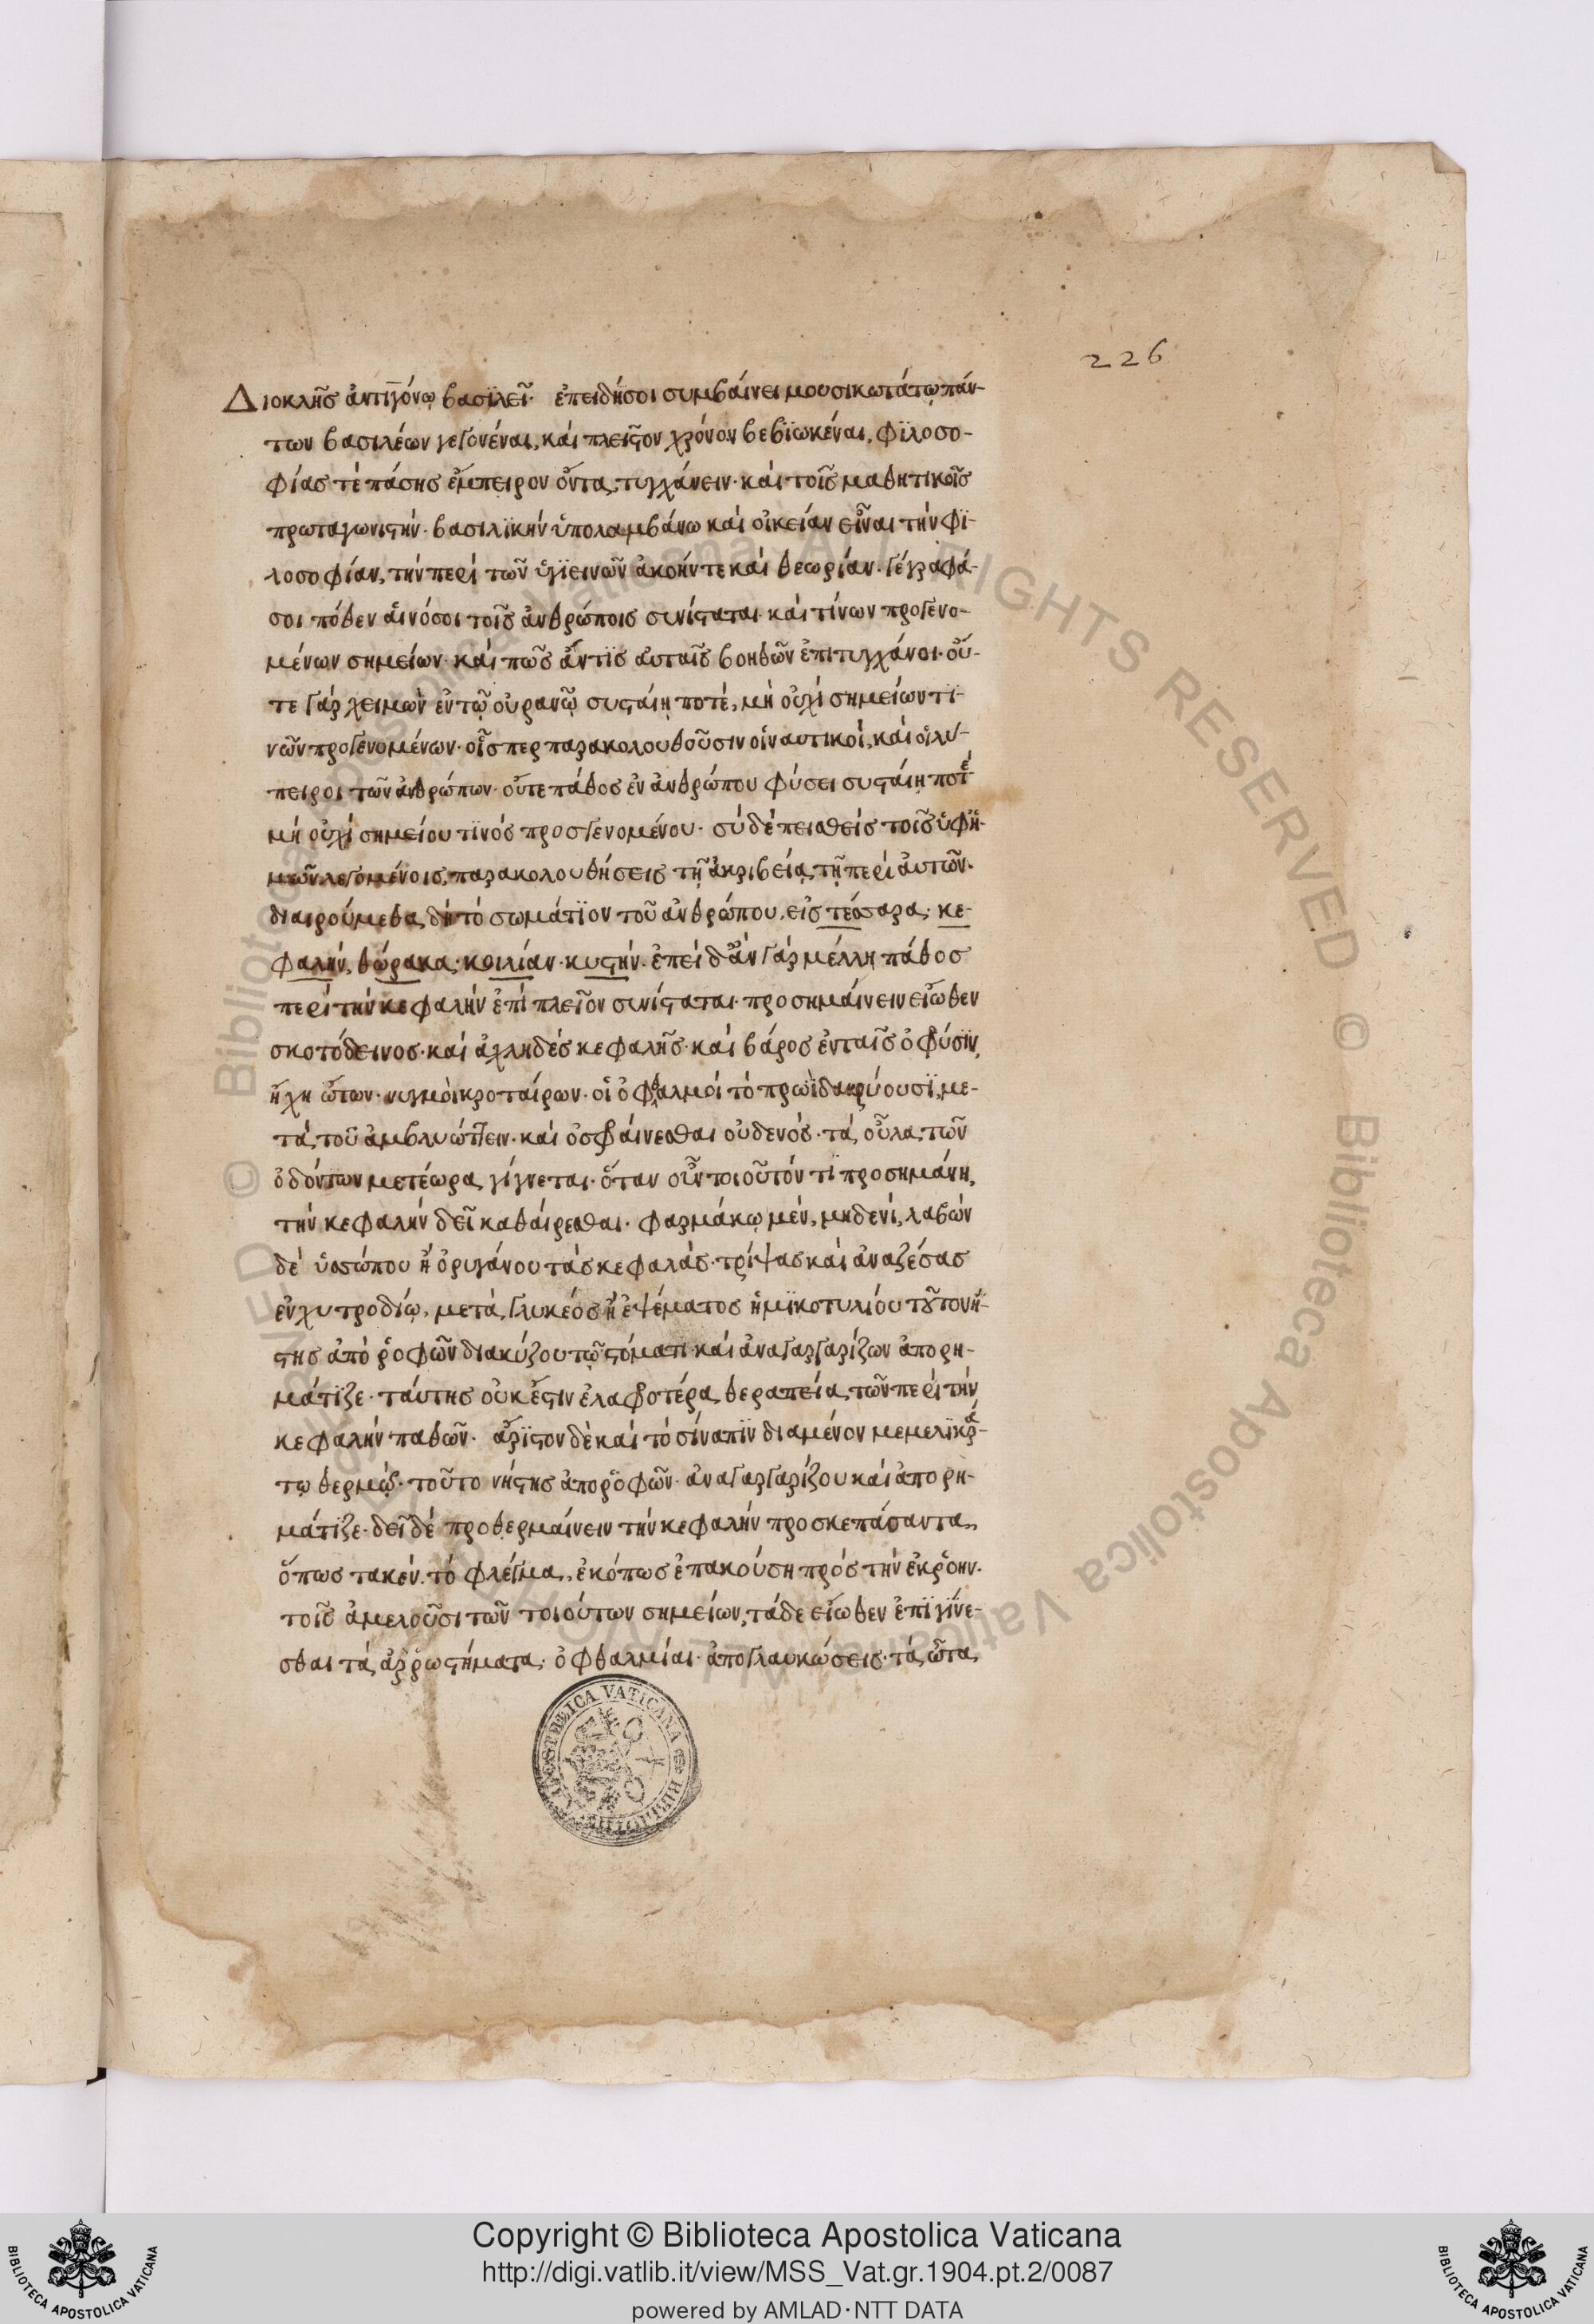 226
Διοκλῆς ἀντιγόνω βασϊλεῖ· ἐπειδήσοι συμβαίνει μουσικωτάτω πάν-
των βασιλέων γεγονέναι, καὶ πλεῖστον χρόνον βεβϊωκέναι, φϊλοσο-
φίας τὲ πάσης ἔμπειρον ὄντα τυγχάνειν· καὶ τοῖς μαθητικοῖς
πρωταγωνιστήν· βασιλϊκήν ὑπολαμβάνω καὶ οἰκείαν εἶναι τὴν φϊ-
λοσοφίαν, τὴν περὶ τῶν ὑγϊεινῶν ἀκοήν τε καὶ θεωρίαν. γέγραφά-
σοι πόθεν αἱ νόσοι τοῖς ἀνθρώποις συνίσταται· καὶ τίνων προγενο-
μένων σημείων· καὶ πῶς ἄν τϊς αυταῖς βοηθῶν ἐπιτυγχάνοι· οὔ-
τε γὰρ χειμὼν ἐν τῷ οὐρανῷ συσταίη ποτέ, μὴ οὐχὶ σημείων τϊ-
νῶν προγενομένων· οἷσπερ παρακολουθοῦσιν οἱ ναυτικοί, καὶ οἱ
πειροι τῶν ἀνθρώπων· οὔτε πάθος ἐν ἀνθρώπου φύσει συσταίη ποτὲ
μὴ οὐχὶ σημείου τϊνός προσγενομένου· σὺ δὲ πεισθείς τοῖς ὑφή-
μῶν λεγομένοις, παρακολουθήσεις τῇ ἀκριβεία τῇ περὶ ἀυτῶν·
διαιρούμεθα δὴ τὸ σωμάτϊον τοῦ ἀνθρώπου, εἰς τέσσαρα· κε-
φαλήν, θώρακα· κοιλίαν· κυστήν· ἐπειδ᾽ ἂν γὰρ μέλλη πάθος
περὶ τὴν κεφαλήν ἐπὶ πλεῖον συνίσταται· προσημαίνειν εἴωθεν
σκοτόδεινος· καὶ ἀχληδές κεφαλῆς· καὶ βάρος ἐν ταῖς ὀφύσϊν,
ἤχη ὤτων· νυγμοὶ κροταίρων· οἱ ὀφθαλμοί τὸ πρωῒ δακρύουσϊ, με-
τὰ τοῦ ἀμβλυώττειν· καὶ ὀσφαίνεσθαι οὐδενός· τὰ οὖλα τῶν
ὀδόντων μετέωρα γίγνεται· ὅταν οὖν τοιοῦτόν τϊ προσημάνη,
τὴν κεφαλήν δεῖ καθαίρεσθαι· φαρμάκω μέν, μηδενί, λαβών
δὲ ὑσσώπου ἢ ὀριγάνου τὰς κεφαλάς· τρίψας καὶ ἀναζέσας
ἐν χυτροδίω, μετὰ γλυκέος ἢ ἑψέματος ἡμϊκοτυλίου τοῦτο νή-
στης ἀπὸ ῥοφῶν διακύζου τῷ στόματι καὶ ἀναγαργαρίζων ἀπορη-
μάτϊζε· ταύτης οὐκ ἔστιν ἐλαφοτέρα θεραπεία τῶν περὶ τὴν
κεφαλήν παθῶν· ἄρϊστον δὲ καὶ τὸ σίναπϊν διαμένον μεμελϊκρά-
τω θερμῷ· τοῦτο νήστης ἀπορροφῶν· ἀναγαργαρίζου καὶ ἀπορη-
μάτϊζε· δεῖ δὲ προθερμαίνειν τὴν κεφαλήν προσκεπάσαντα,
ὅπως τακέν τὸ φλέγμα, ἐκόπως ἐπακούση πρὸς τὴν ἐκρόην·
τοῖς ἀμελοῦσι τῶν τοιούτων σημείων, τάδε εἴωθεν ἐπϊγίνε-
σθαι τὰ ἀρρωστήματα· ὀφθαλμίαι· ἀπογλαυκώσεις· τὰ ὦτα
Copyright © Biblioteca Apostolica Vaticana
http://digi.vatlib.it/view/MSS_Vat.gr.1904.pt.2/0087
powered by AMLAD·NTT DATA
BIBLIOTECA APOSTOLICA VATICANA
BIBLIOTECA APOSTOLICA VATICANA